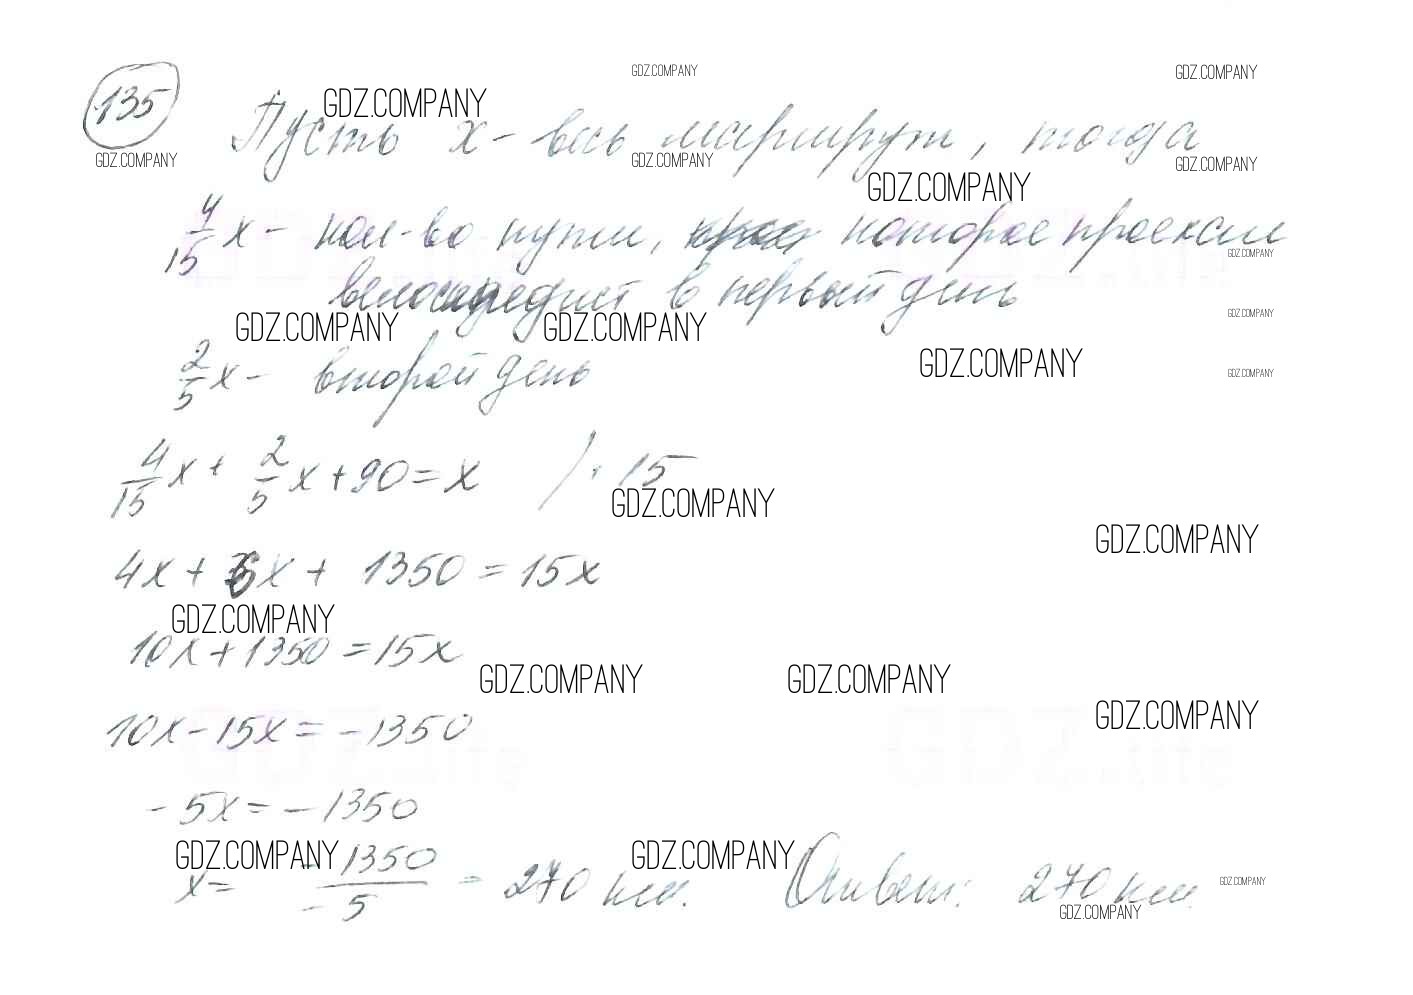 GDZ.COMPANY GDZ.COMPANY
135 GDZ.COMPANY
Пусть x - весь маршрут, тогда
GDZ.COMPANY GDZ.COMPANY GDZ.COMPANY
GDZ.COMPANY
4/15 x - кол-во пути, которое проехал
GDZ.COMPANY
велосипедист в первый день
GDZ.COMPANY GDZ.COMPANY GDZ.COMPANY
GDZ.COMPANY
2/5 x - второй день
GDZ.COMPANY
4/15 x + 2/5 x + 90 = x / · 15
GDZ.COMPANY
GDZ.COMPANY
4x + 6x + 1350 = 15x
GDZ.COMPANY
10x + 1350 = 15x
GDZ.COMPANY GDZ.COMPANY
GDZ.COMPANY
10x - 15x = -1350
- 5x = - 1350
GDZ.COMPANY GDZ.COMPANY
x = -1350/-5 = 270 км. Ответ: 270 км.
GDZ.COMPANY
GDZ.COMPANY